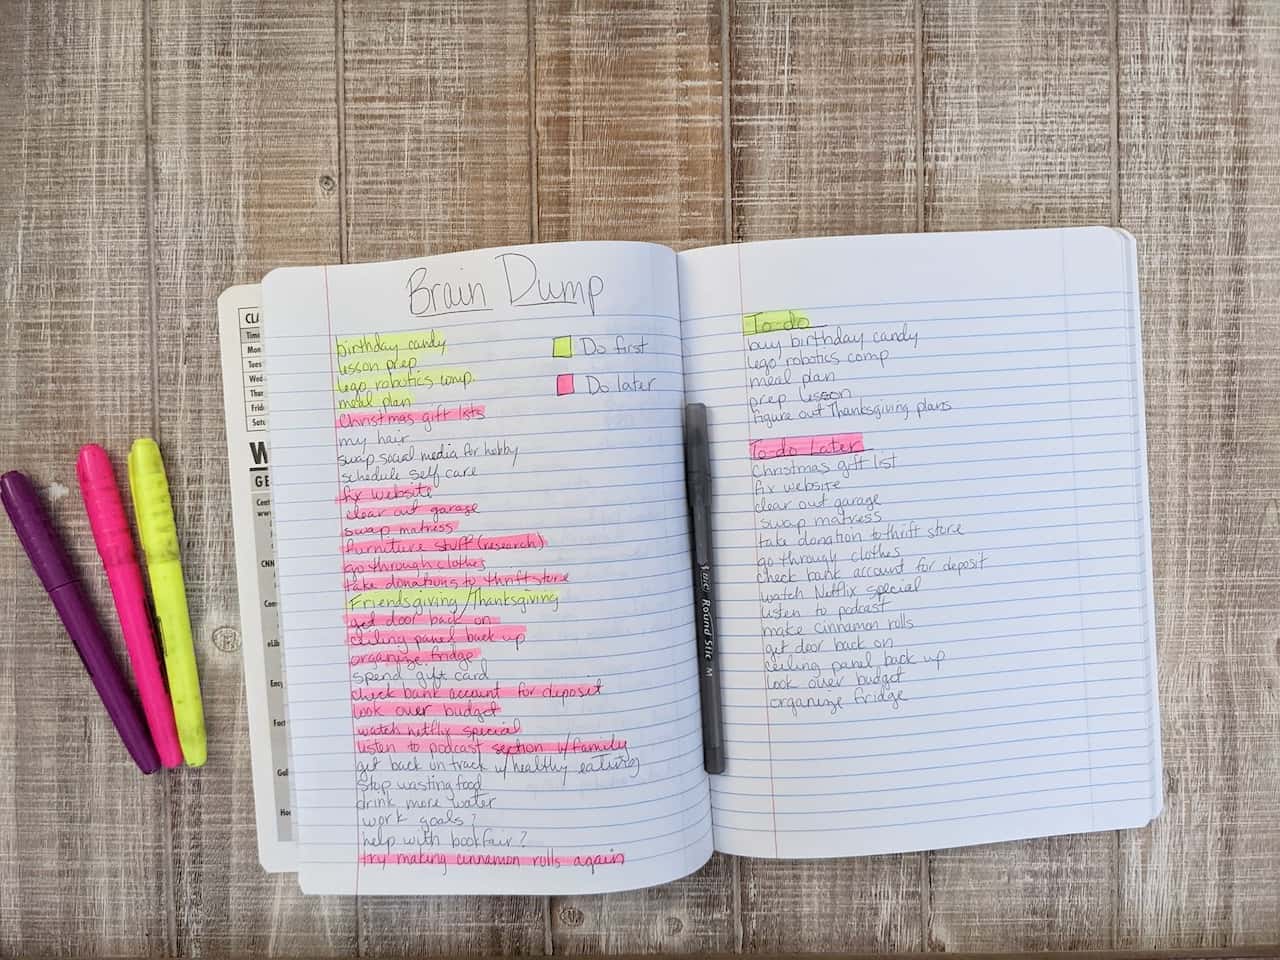 Brain Dump
birthday candy
lesson prep
lego robotics comp.
meal plan
Christmas gift lists
my hair
swap social media for hobby
schedule self care
fix website
clear out garage
swap matress
furniture stuff? (research)
go through clothes
take donations to thrift store
Friendsgiving/Thanksgiving
get door back on
ceiling panel back up
organize fridge
spend gift card
check bank account for deposit
look over budget
watch netflix special
listen to podcast section w/family
get back on track w/healthy eating
stop wasting food
drink more water
work goals?
help with bookfair?
try making cinnamon rolls again
Do first
Do later
To-do
buy birthday candy
lego robotics comp
meal plan
prep lesson
figure out Thanksgiving plans
To-do Later
Christmas gift list
fix website
clear out garage
swap matress
take donation to thrift store
go through clothes
check bank account for deposit
watch Netflix special
listen to podcast
make cinnamon rolls
get door back on
ceiling panel back up
look over budget
organize fridge
BIC Round Stic M
CLA
Time
Mon
Tues
Wed
Thur
Frid
Satu
W
GE
CNN
eLib
Ency
Fact